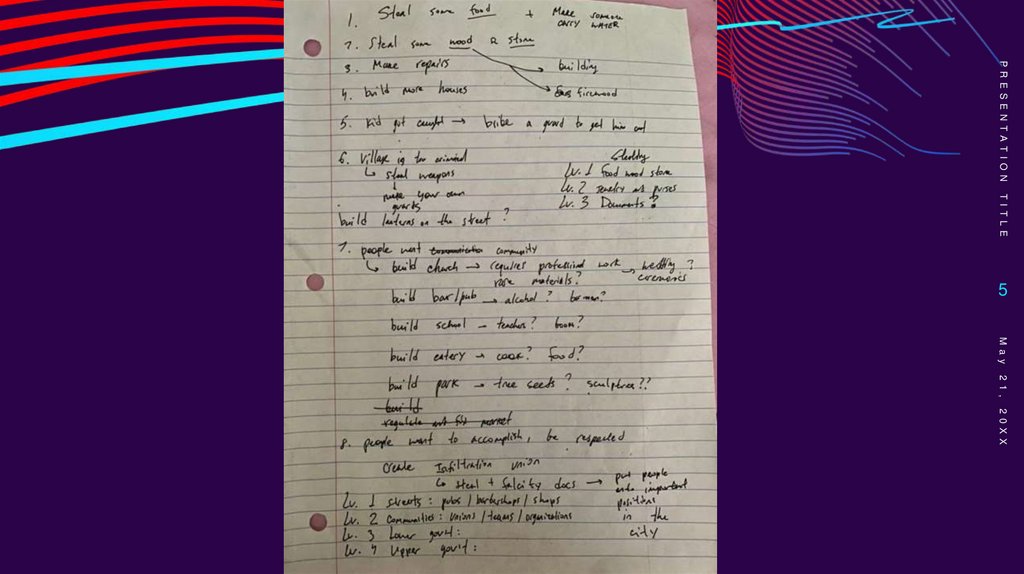 1. Steal some food + Make someone carry water
2. Steal some wood & stone
3. Make repairs → building
4. build more houses → firewood
5. Kid got caught → bribe a guard to get him out
6. Village is too criminal
↳ steal weapons
make your own guards
build lanterns on the street ?
Lv. 1 Food wood stone
Lv. 2 Jewelry and purses
Lv. 3 Documents?
7. people want community
↳ build church → requires professional work → wedding ? ceremonies
rare materials?
build bar/pub → alcohol? barman?
build school → teachers? books?
build eatery → cook? food?
build park → tree seeds? sculptures??
build
regulate and fix market
8. people want to accomplish, be respected
Create Infiltration union
↳ steal + falcify docs → put people onto important positions in the city
Lv. 1 streets: pubs / barbershops / shops
Lv. 2 communities: unions / teams / organizations
Lv. 3 Lower gov't:
Lv. 4 Upper gov't:
PRESENTATION TITLE
5
May 21, 20XX